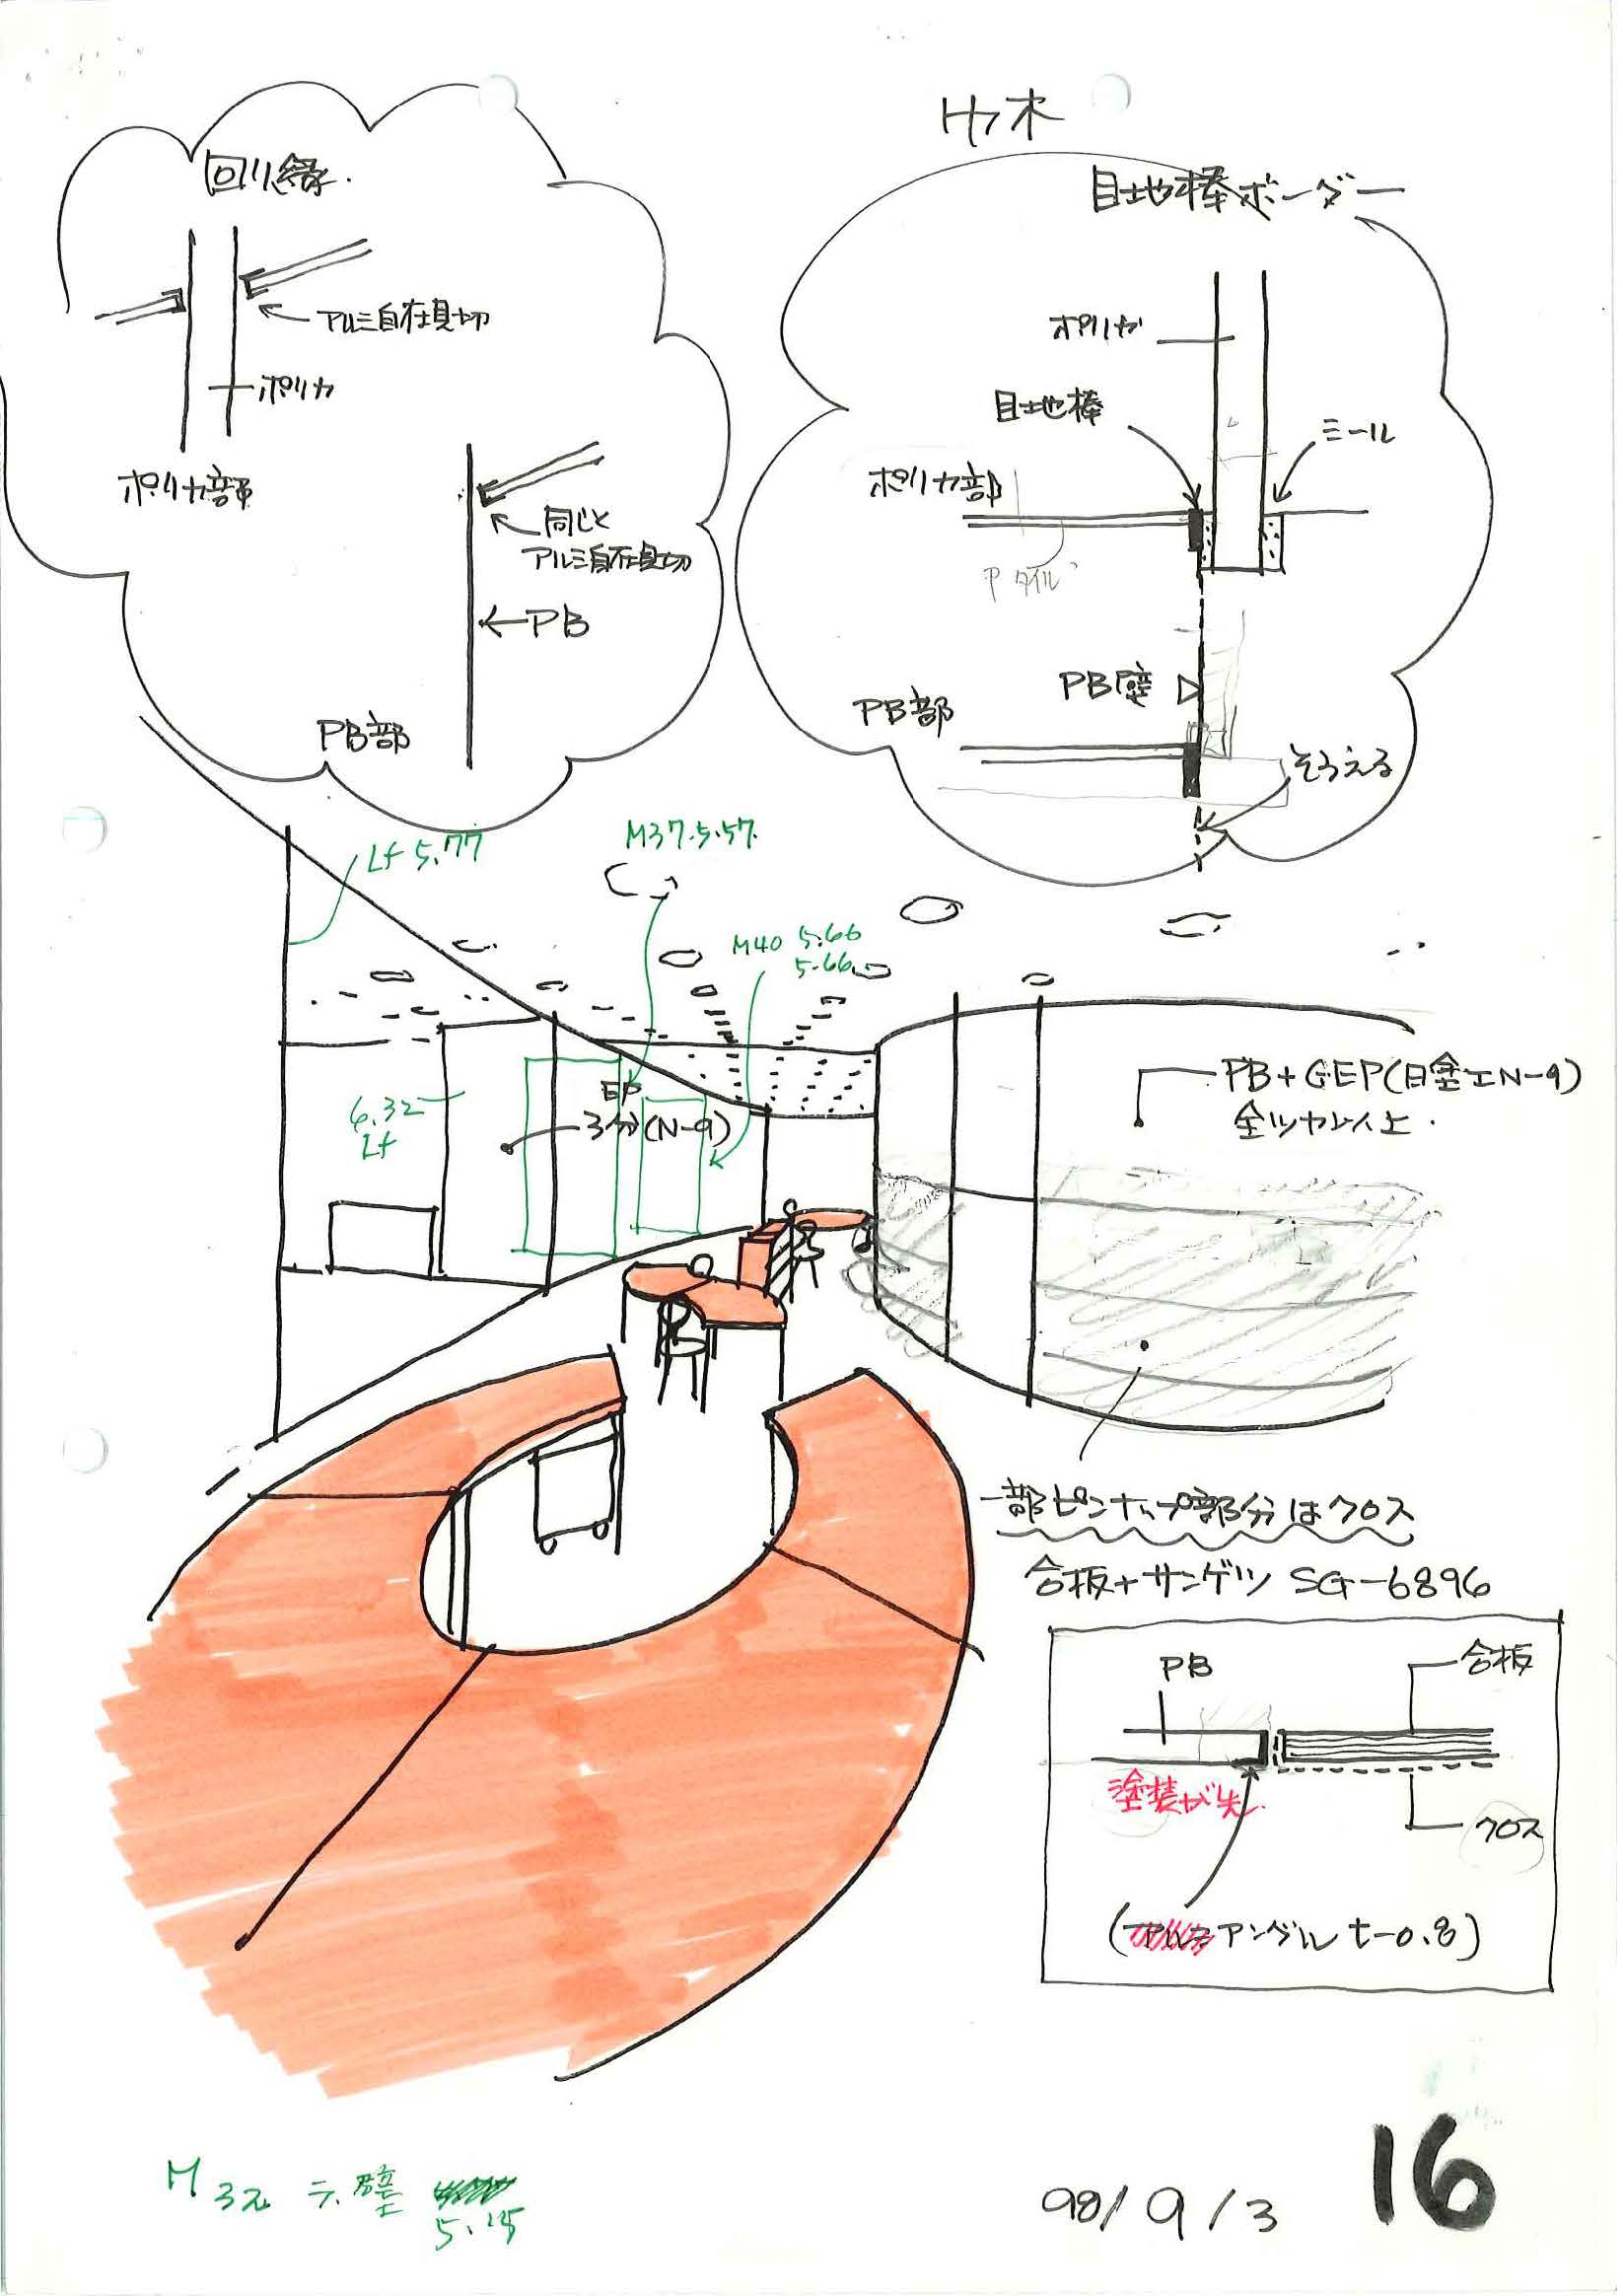 回り縁.
アルミ自在見切
ポリカ
ポリカ部
同じく
アルミ自在見切
PB
PB部
巾木
目地棒ボーダー
ポリカ
目地棒
シール
ポリカ部
Pタイル
PB壁
PB部
そろえる
Lf 5.77
M37.5.57.
M40 5.66
5.66
6.32
Lf
EP
3分(N-9)
PB+GEP(日塗工N-9)
全ツヤ消し以上.
一部ピンナップ部分はクロス
合板+サンゲツ SG-6896
PB
合板
塗装が先.
クロス
アングル t-0.8)
壁
5.15
98/9/3
16